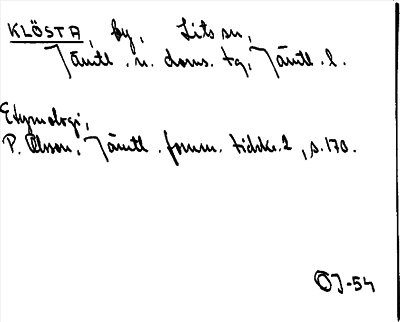 KLÖSTA, by, Lits sn,
Jämtl. n. doms. tg, Jämtl. l.
Etymologi,
P. Olsson, Jämtl. fornm. tidskr. 2, s. 170.
OJ-54